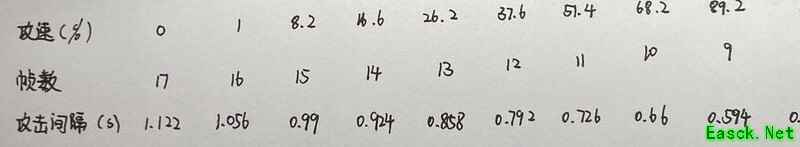 攻速(%) 0 1 8.2 16.6 26.2 37.6 51.4 68.2 89.2
帧数 17 16 15 14 13 12 11 10 9
攻击间隔(s) 1.122 1.056 0.99 0.924 0.858 0.792 0.726 0.66 0.594 0.
Easck.Net